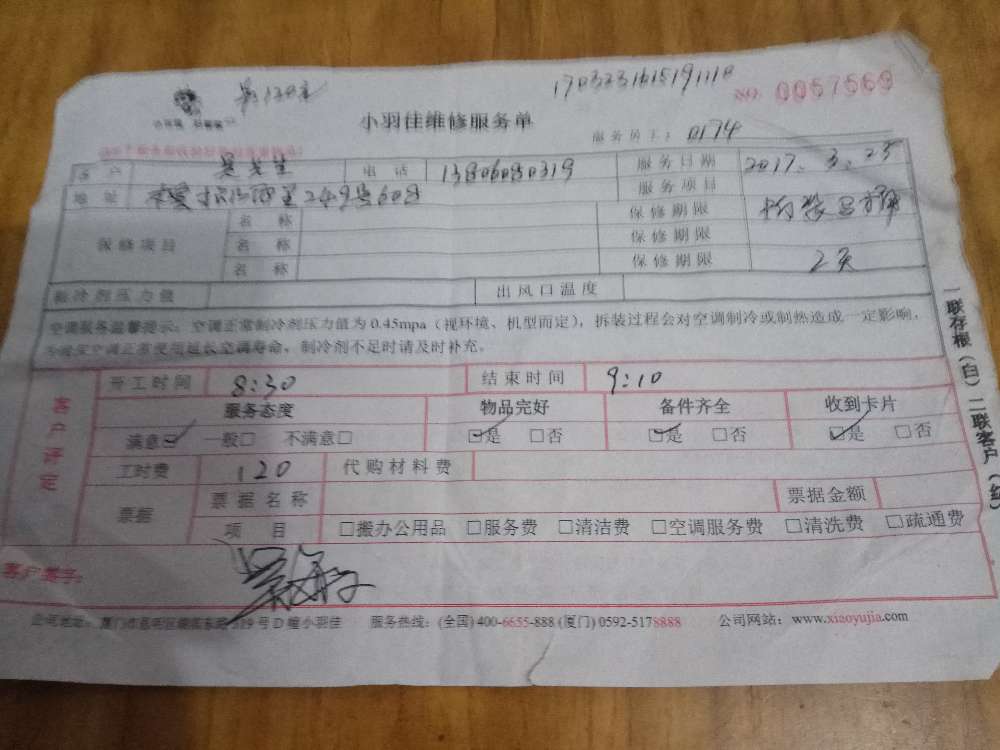 1703231615191110
NO. 0057569
小羽佳维修服务单
服务员工: 0174
客户 吴先生 电话 13806080319 服务日期 2017.3.23
地址 249号608 服务项目
保修项目 名称 保修期限
名称 保修期限
名称 保修期限 2天
制冷剂压力值 出风口温度
空调服务温馨提示: 空调正常制冷剂压力值为0.45mpa (视环境、机型而定), 拆装过程会对空调制冷或制热造成一定影响,
制冷剂不足时请及时补充。
客户评定
开工时间 8:30 结束时间 9:10
服务态度 物品完好 备件齐全 收到卡片
满意☑ 一般□ 不满意□ ☑是 □否 ☑是 □否 ☑是 □否
工时费 120 代购材料费
票据 票据名称 票据金额
项目 □搬办公用品 □服务费 □清洁费 □空调服务费 □清洗费 □疏通费
客户签字:
319号D幢小羽佳 服务热线: (全国) 400-6655-888 (厦门) 0592-5178888 公司网站: www.xiaoyujia.com
一联存根(白) 二联客户(红)